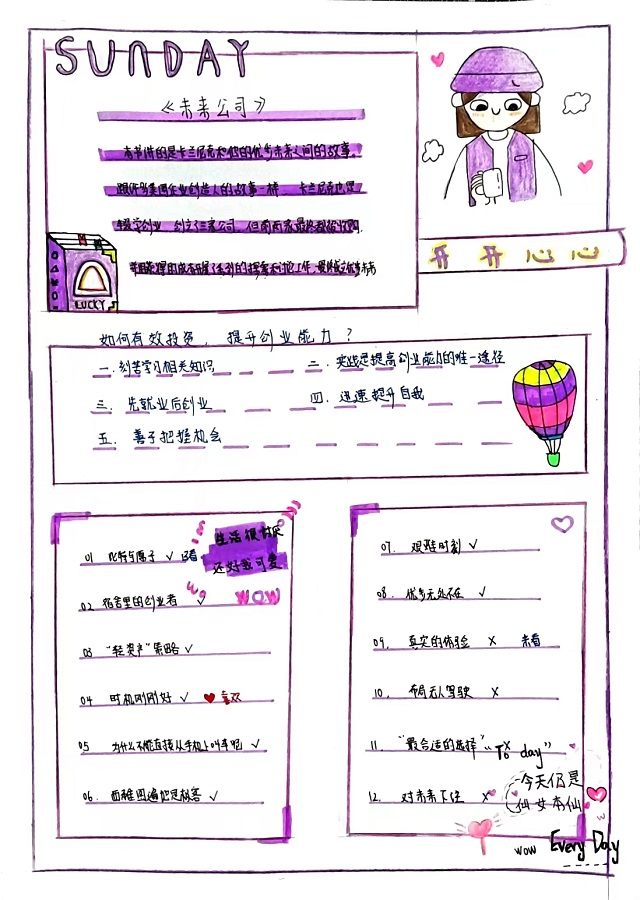 SUNDAY
《未来公司》
本书讲的是卡兰尼克和他的优步未来之间的故事。
跟许多美国企业创始人的故事一样，卡兰尼克也是
辍学创业，创立了三家公司，但前两家最终都被收购，
LUCKY
开 开 心 心
如何有效投资，提升创业能力？
一. 刻苦学习相关知识
二. 实践是提高创业能力的唯一途径
三. 先就业后创业
四. 迅速提升自我
五. 善于把握机会
生活很有趣
还好我可爱
WOW
01 比特与原子 √ 已看
02 宿舍里的创业者 √
03 "轻资产"策略 √
04 时机刚刚好 √ ♥喜欢
05 为什么不能直接从手机上叫车呢 √
06. 西雅图遍地是秘密 √
07. 艰难时刻 √
08. 优步无处不在 √
09. 真实的体验 × 未看
10. 布局无人驾驶 ×
11. "最合适的选择" ×
12. 对未来下注 ×
"To day"
今天仍是
仙女本仙
wow Every Day